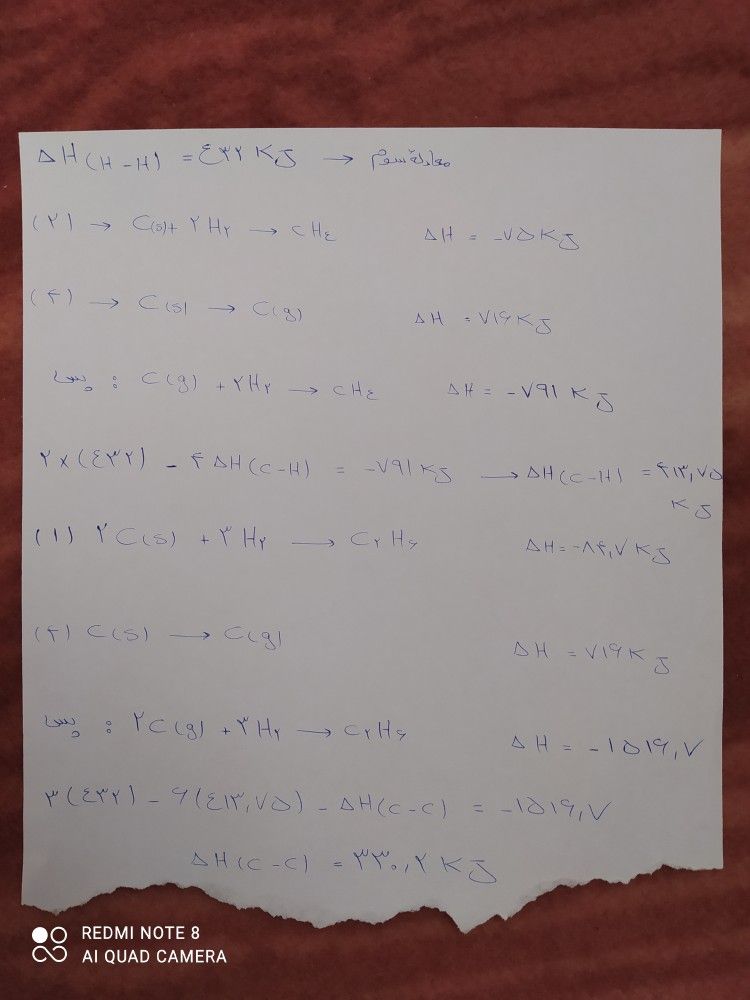 ΔH (H-H) = ۴۳۲ KJ → معادلهٔ سوم
(۲) → C(s) + ۲H۲ → CH۴ ΔH = -۷۵ KJ
(۴) → C(s) → C(g) ΔH = ۷۱۶ KJ
پس : C(g) + ۲H۲ → CH۴ ΔH = -۷۹۱ KJ
۲×(۴۳۲) - ۴ΔH(C-H) = -۷۹۱ KJ → ΔH(C-H) = ۴۱۳,۷۵
KJ
(۱) ۲C(s) + ۳H۲ → C۲H۶ ΔH = -۸۴,۷ KJ
(۴) C(s) → C(g) ΔH = ۷۱۶ KJ
پس : ۲C(g) + ۳H۲ → C۲H۶ ΔH = -۱۵۱۶,۷
۳(۴۳۲) - ۶(۴۱۳,۷۵) - ΔH(C-C) = -۱۵۱۶,۷
ΔH(C-C) = ۳۳۰,۲ KJ
REDMI NOTE 8
AI QUAD CAMERA